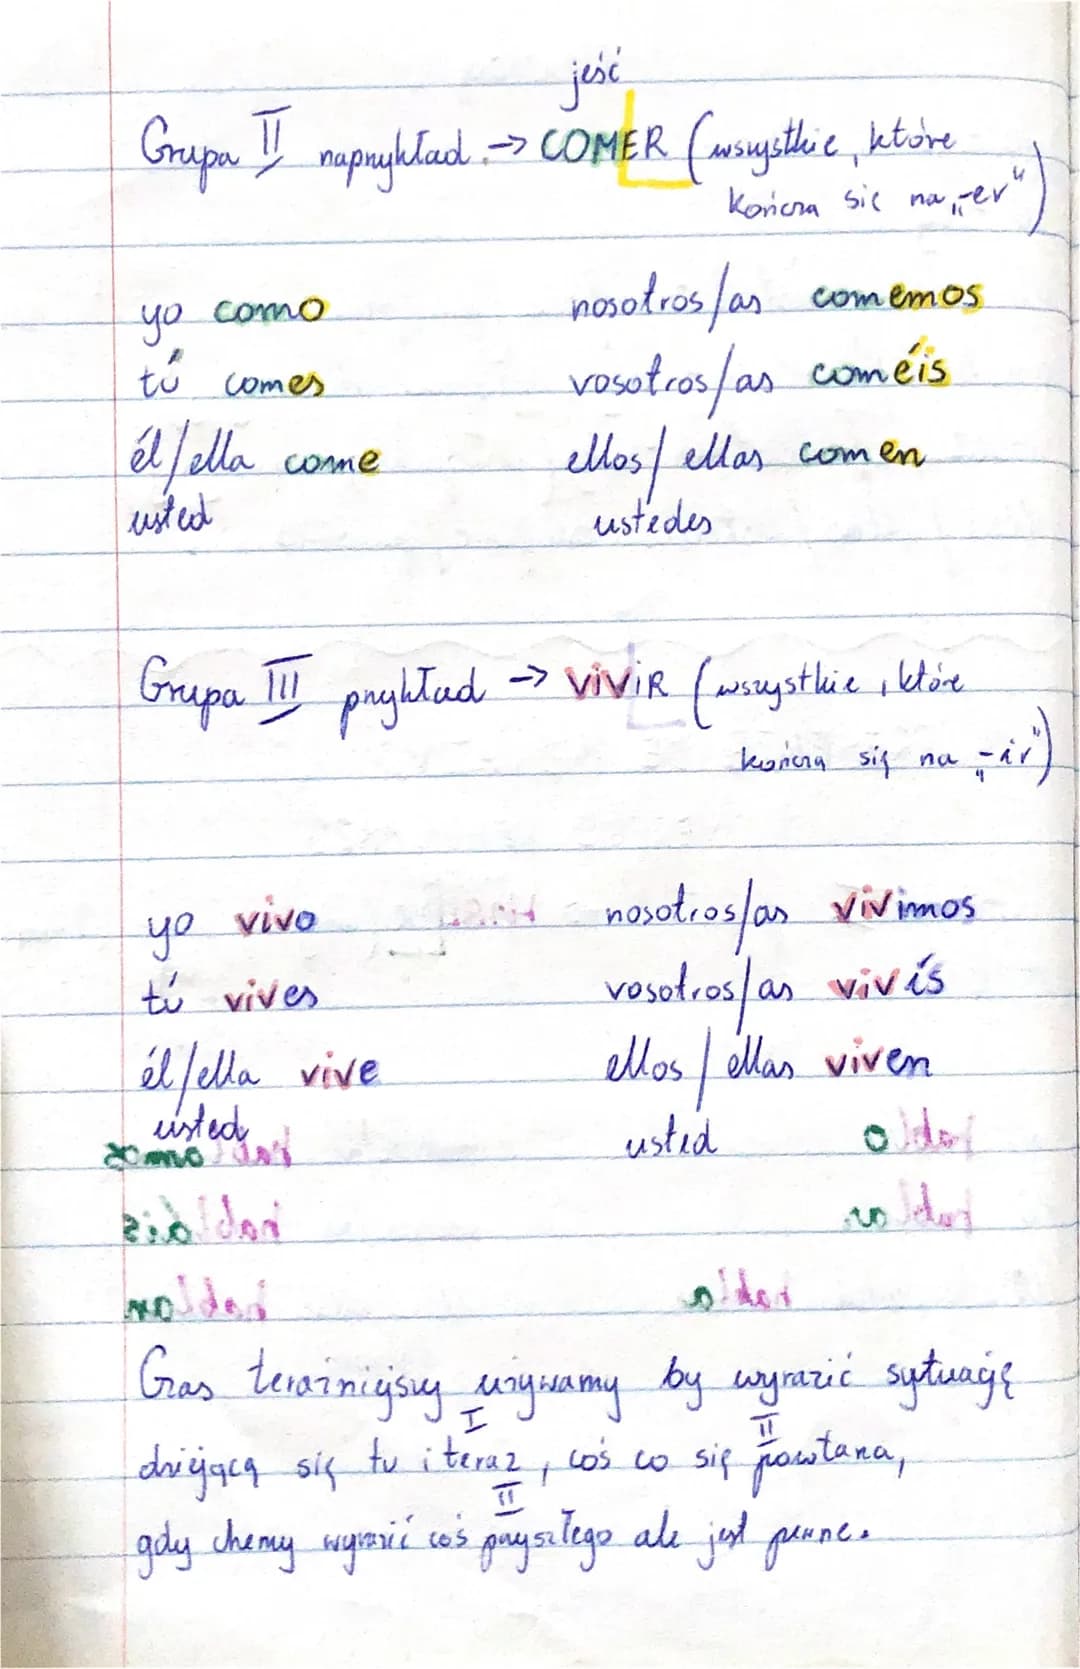 jeść
Grupa II naprzykład → COMER (wszystkie, które
kończą się na „-er")
yo como nosotros/as comemos
tú comes vosotros/as coméis
él/ella come ellos/ellas comen
usted ustedes
Grupa III przykład → VIVIR (wszystkie, które
kończą się na „-ir")
yo vivo nosotros/as vivimos
tú vives vosotros/as vivís
él/ella vive ellos/ellas viven
usted usted
Czas teraźniejszy używamy by wyrazić sytuację
I II
dziejącą się tu i teraz, coś co się powtarza,
II
gdy chemy wyrazić coś przyszłego ale jest pewne.